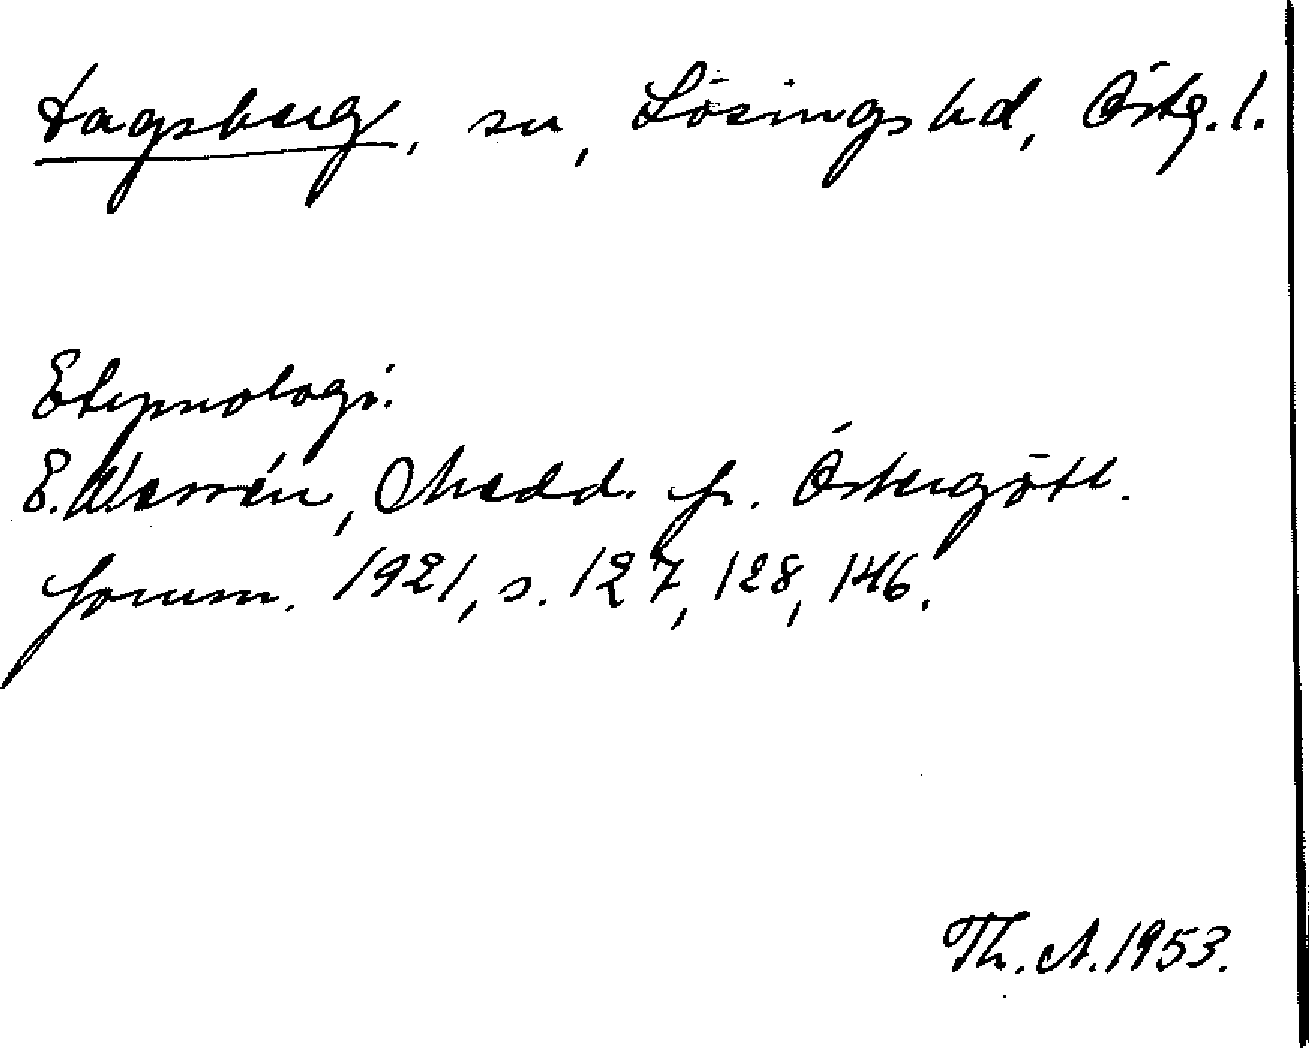 Dagsberg, sn, Lösings hd, Östg. l.
Etymologi.
E. Wessén, Medd. fr. Östergötl.
fornm. 1921, s. 127, 128, 146.
Th. A. 1953.